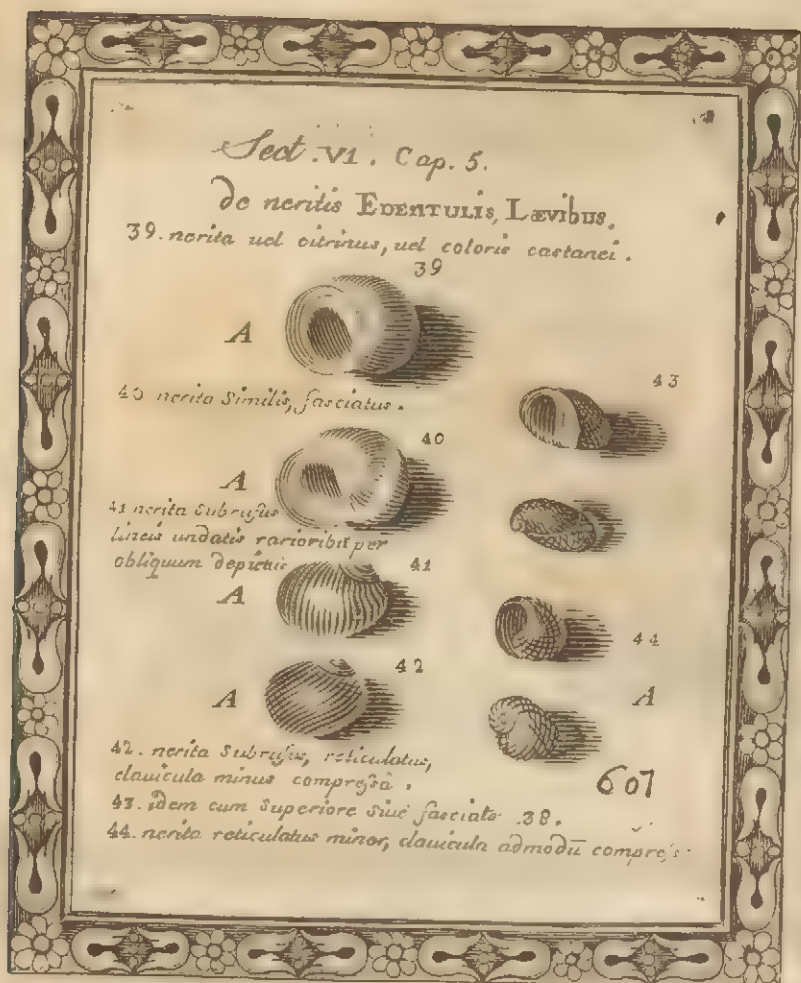 Sect. VI. Cap. 5.
de neritis EDENTULIS, LÆVIBUS.
39. nerita uel citrinus, uel coloris castanei.
39
A
40 nerita Similis, fasciatus.
43
40
A
41 nerita Subrufus
lineis undatis rarioribus per
obliquum depictus
41
A
44
42
A
A
42. nerita Subrufus, reticulatus,
clauicula minus compressâ.
607
43. idem cum Superiore Siue fasciato .38.
44. nerita reticulatus minor, clauicula admodū compress